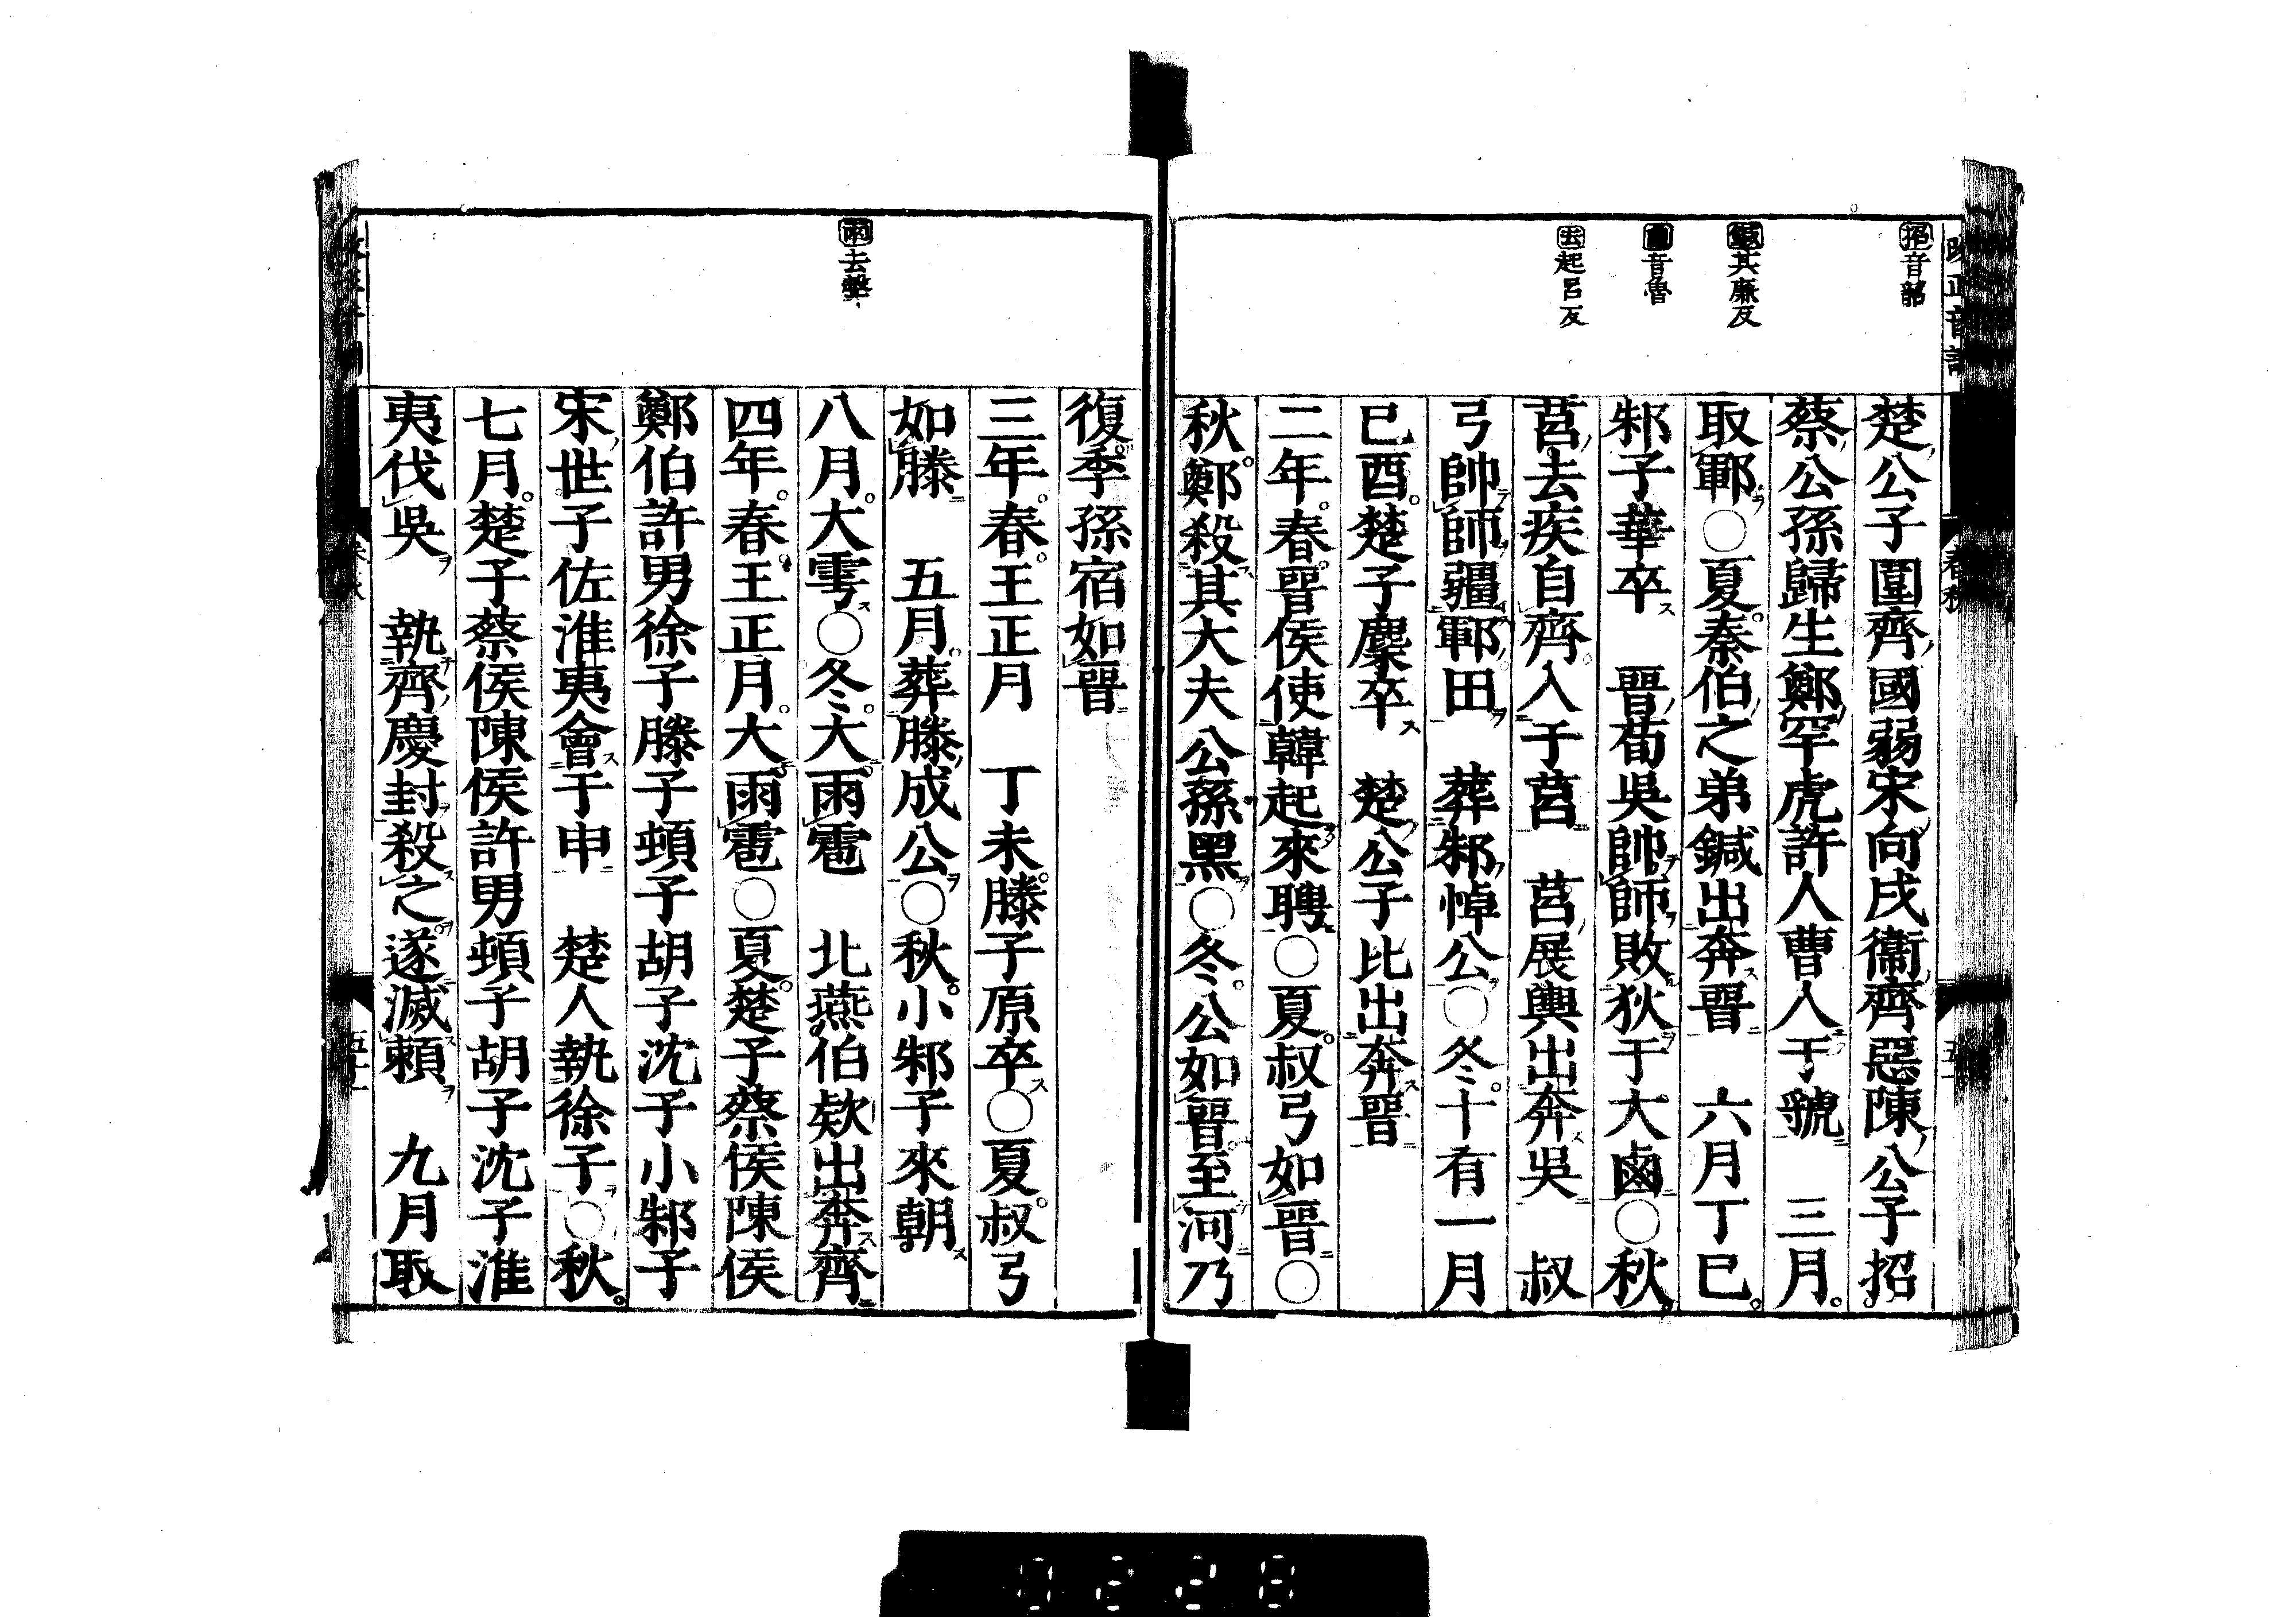 招音韶
鍼其廉反
鹵音魯
去起呂反
楚公子圍齊國弱宋向戌衞齊惡陳公子招
蔡公孫歸生鄭罕虎許人曹人于虢　三月
取鄆○夏秦伯之弟鍼出奔晉　六月丁巳
邾子華卒　晉荀吳帥師敗狄于大鹵○秋
莒去疾自齊入于莒　莒展輿出奔吳　叔
弓帥師疆鄆田　葬邾悼公○冬十有一月
己酉楚子麇卒　楚公子比出奔晉
二年春晉侯使韓起來聘○夏叔弓如晉○
秋鄭殺其大夫公孫黑○冬公如晉至河乃
雨去聲
復季孫宿如晉
三年春王正月　丁未滕子原卒○夏叔弓
如滕　五月葬滕成公○秋小邾子來朝
八月大雩○冬大雨雹　北燕伯款出奔齊
四年春王正月大雨雹○夏楚子蔡侯陳侯
鄭伯許男徐子滕子頓子胡子沈子小邾子
宋世子佐淮夷會于申　楚人執徐子○秋
七月楚子蔡侯陳侯許男頓子胡子沈子淮
夷伐吳　執齊慶封殺之遂滅賴　九月取
0228